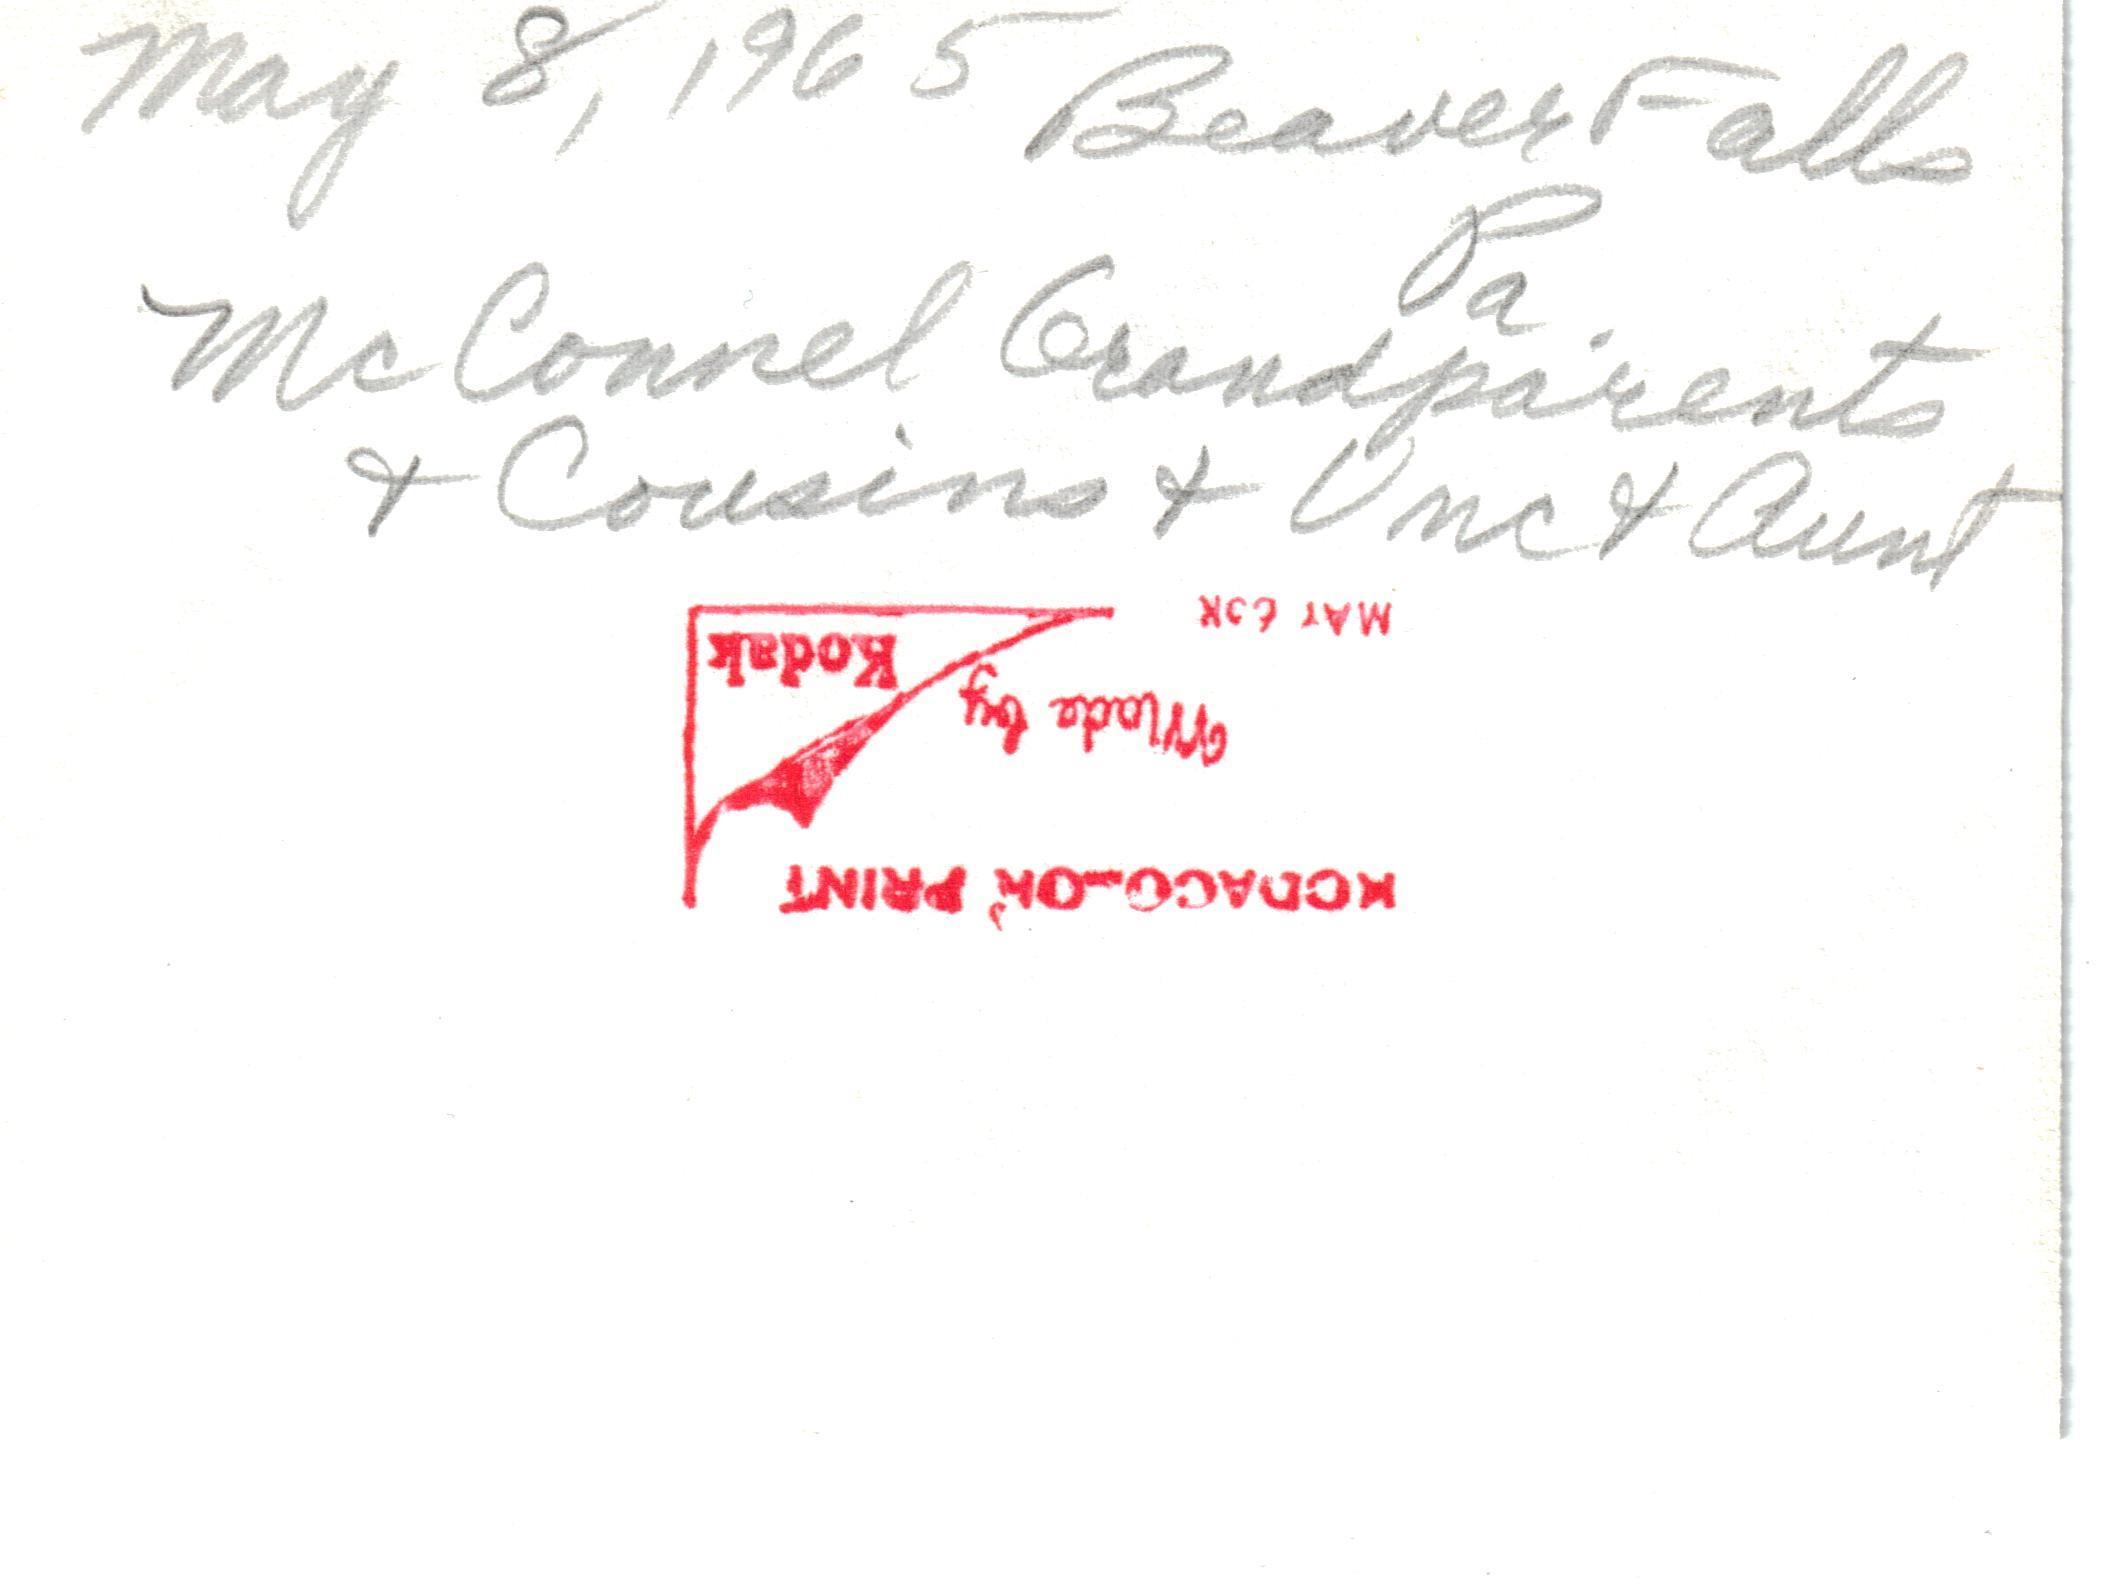 May 8, 1965 Beaver Falls
Pa.
McConnel Grandparents
& Cousins & Unc & Aunt
KODACOLOR PRINT
Made by
Kodak
MAY 65K